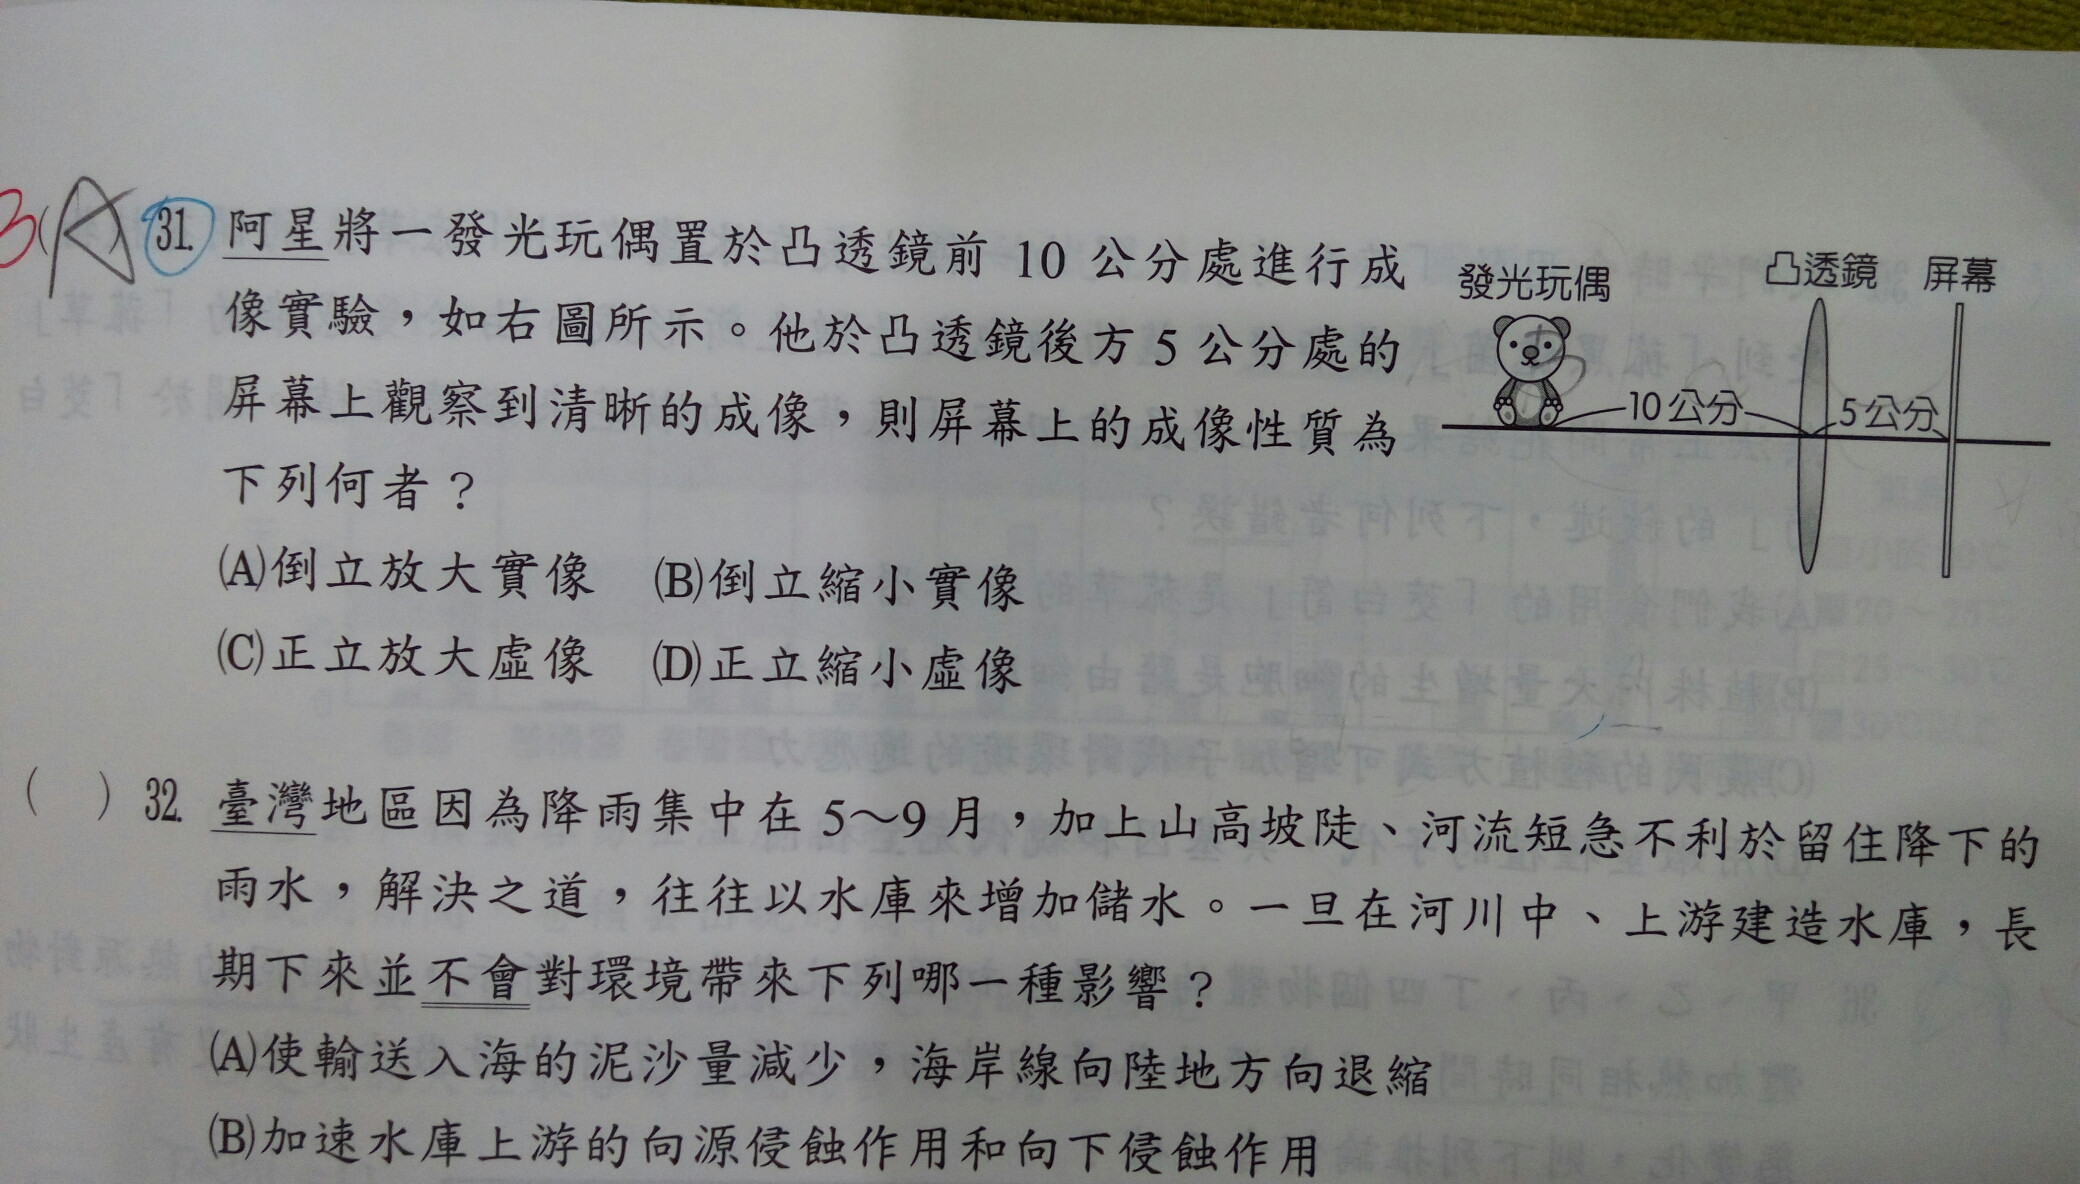 3(A)31. 阿星將一發光玩偶置於凸透鏡前 10 公分處進行成
像實驗，如右圖所示。他於凸透鏡後方 5 公分處的
屏幕上觀察到清晰的成像，則屏幕上的成像性質為
下列何者？
(A)倒立放大實像 (B)倒立縮小實像
(C)正立放大虛像 (D)正立縮小虛像
發光玩偶 凸透鏡 屏幕
10公分 5公分
( ) 32. 臺灣地區因為降雨集中在 5～9 月，加上山高坡陡、河流短急不利於留住降下的
雨水，解決之道，往往以水庫來增加儲水。一旦在河川中、上游建造水庫，長
期下來並不會對環境帶來下列哪一種影響？
(A)使輸送入海的泥沙量減少，海岸線向陸地方向退縮
(B)加速水庫上游的向源侵蝕作用和向下侵蝕作用